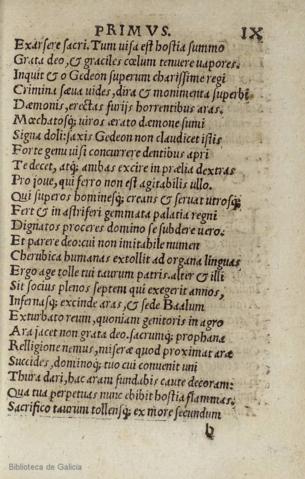 PRIMVS. IX
Exarsere sacri. Tum uisa est hostia summo
Grata deo, & graciles cœlum tenuere uapores.
Inquit & o Gedeon superum charissime regi
Crimina sæua uides, dira & monimenta superbi
Dæmonis, erectas furijs horrentibus aras.
Mœchatosq; uiros ærato dæmone sumi
Signa doli: saxis Gedeon non claudicet istis
Forte genu uisi concurrere dentibus apri
Te decet, atq; ambas excire in prælia dextras
Pro joue, qui ferro non est agitabilis ullo.
Qui superos hominesq; creans & seruat utrosq;
Fert & in astriferi gemmata palatia regni
Dignatos proceres domino se subdere uero:
Et parere deo: cui non imitabile numen
Cherubica humanas extollit ad organa linguas
Ergo age tolle tui taurum patris. alter & illi
Sit socius plenos septem qui exegerit annos,
Infernasq; excinde aras, & sede Baalum
Exturbato reum, quoniam genitoris in agro
Ara jacet non grata deo. sacrumq; prophana
Relligione nemus, miseræ quod proximat aræ
Succides, dominoq; tuo cui conuenit uni
Thura dari, hac aram fundabis caute decoram:
Qua tua perpetuas nunc ebibit hostia flammas.
Sacrifico taurum tollensq; ex more secundum
b
Biblioteca de Galicia